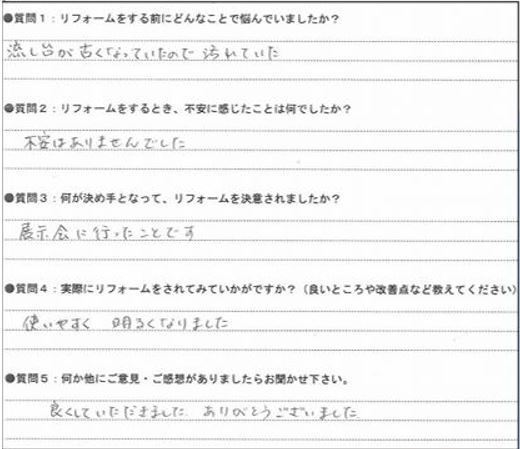 ●質問1:リフォームをする前にどんなことで悩んでいましたか?
流し台が古くなっていたので 汚れていた
●質問2:リフォームをするとき、不安に感じたことは何でしたか?
不安はありませんでした
●質問3:何が決め手となって、リフォームを決意されましたか?
展示会に行ったことです
●質問4:実際にリフォームをされてみていかがですか?(良いところや改善点など教えてください)
使いやすく 明るくなりました
●質問5:何か他にご意見・ご感想がありましたらお聞かせ下さい。
良くしていただきました ありがとうございました